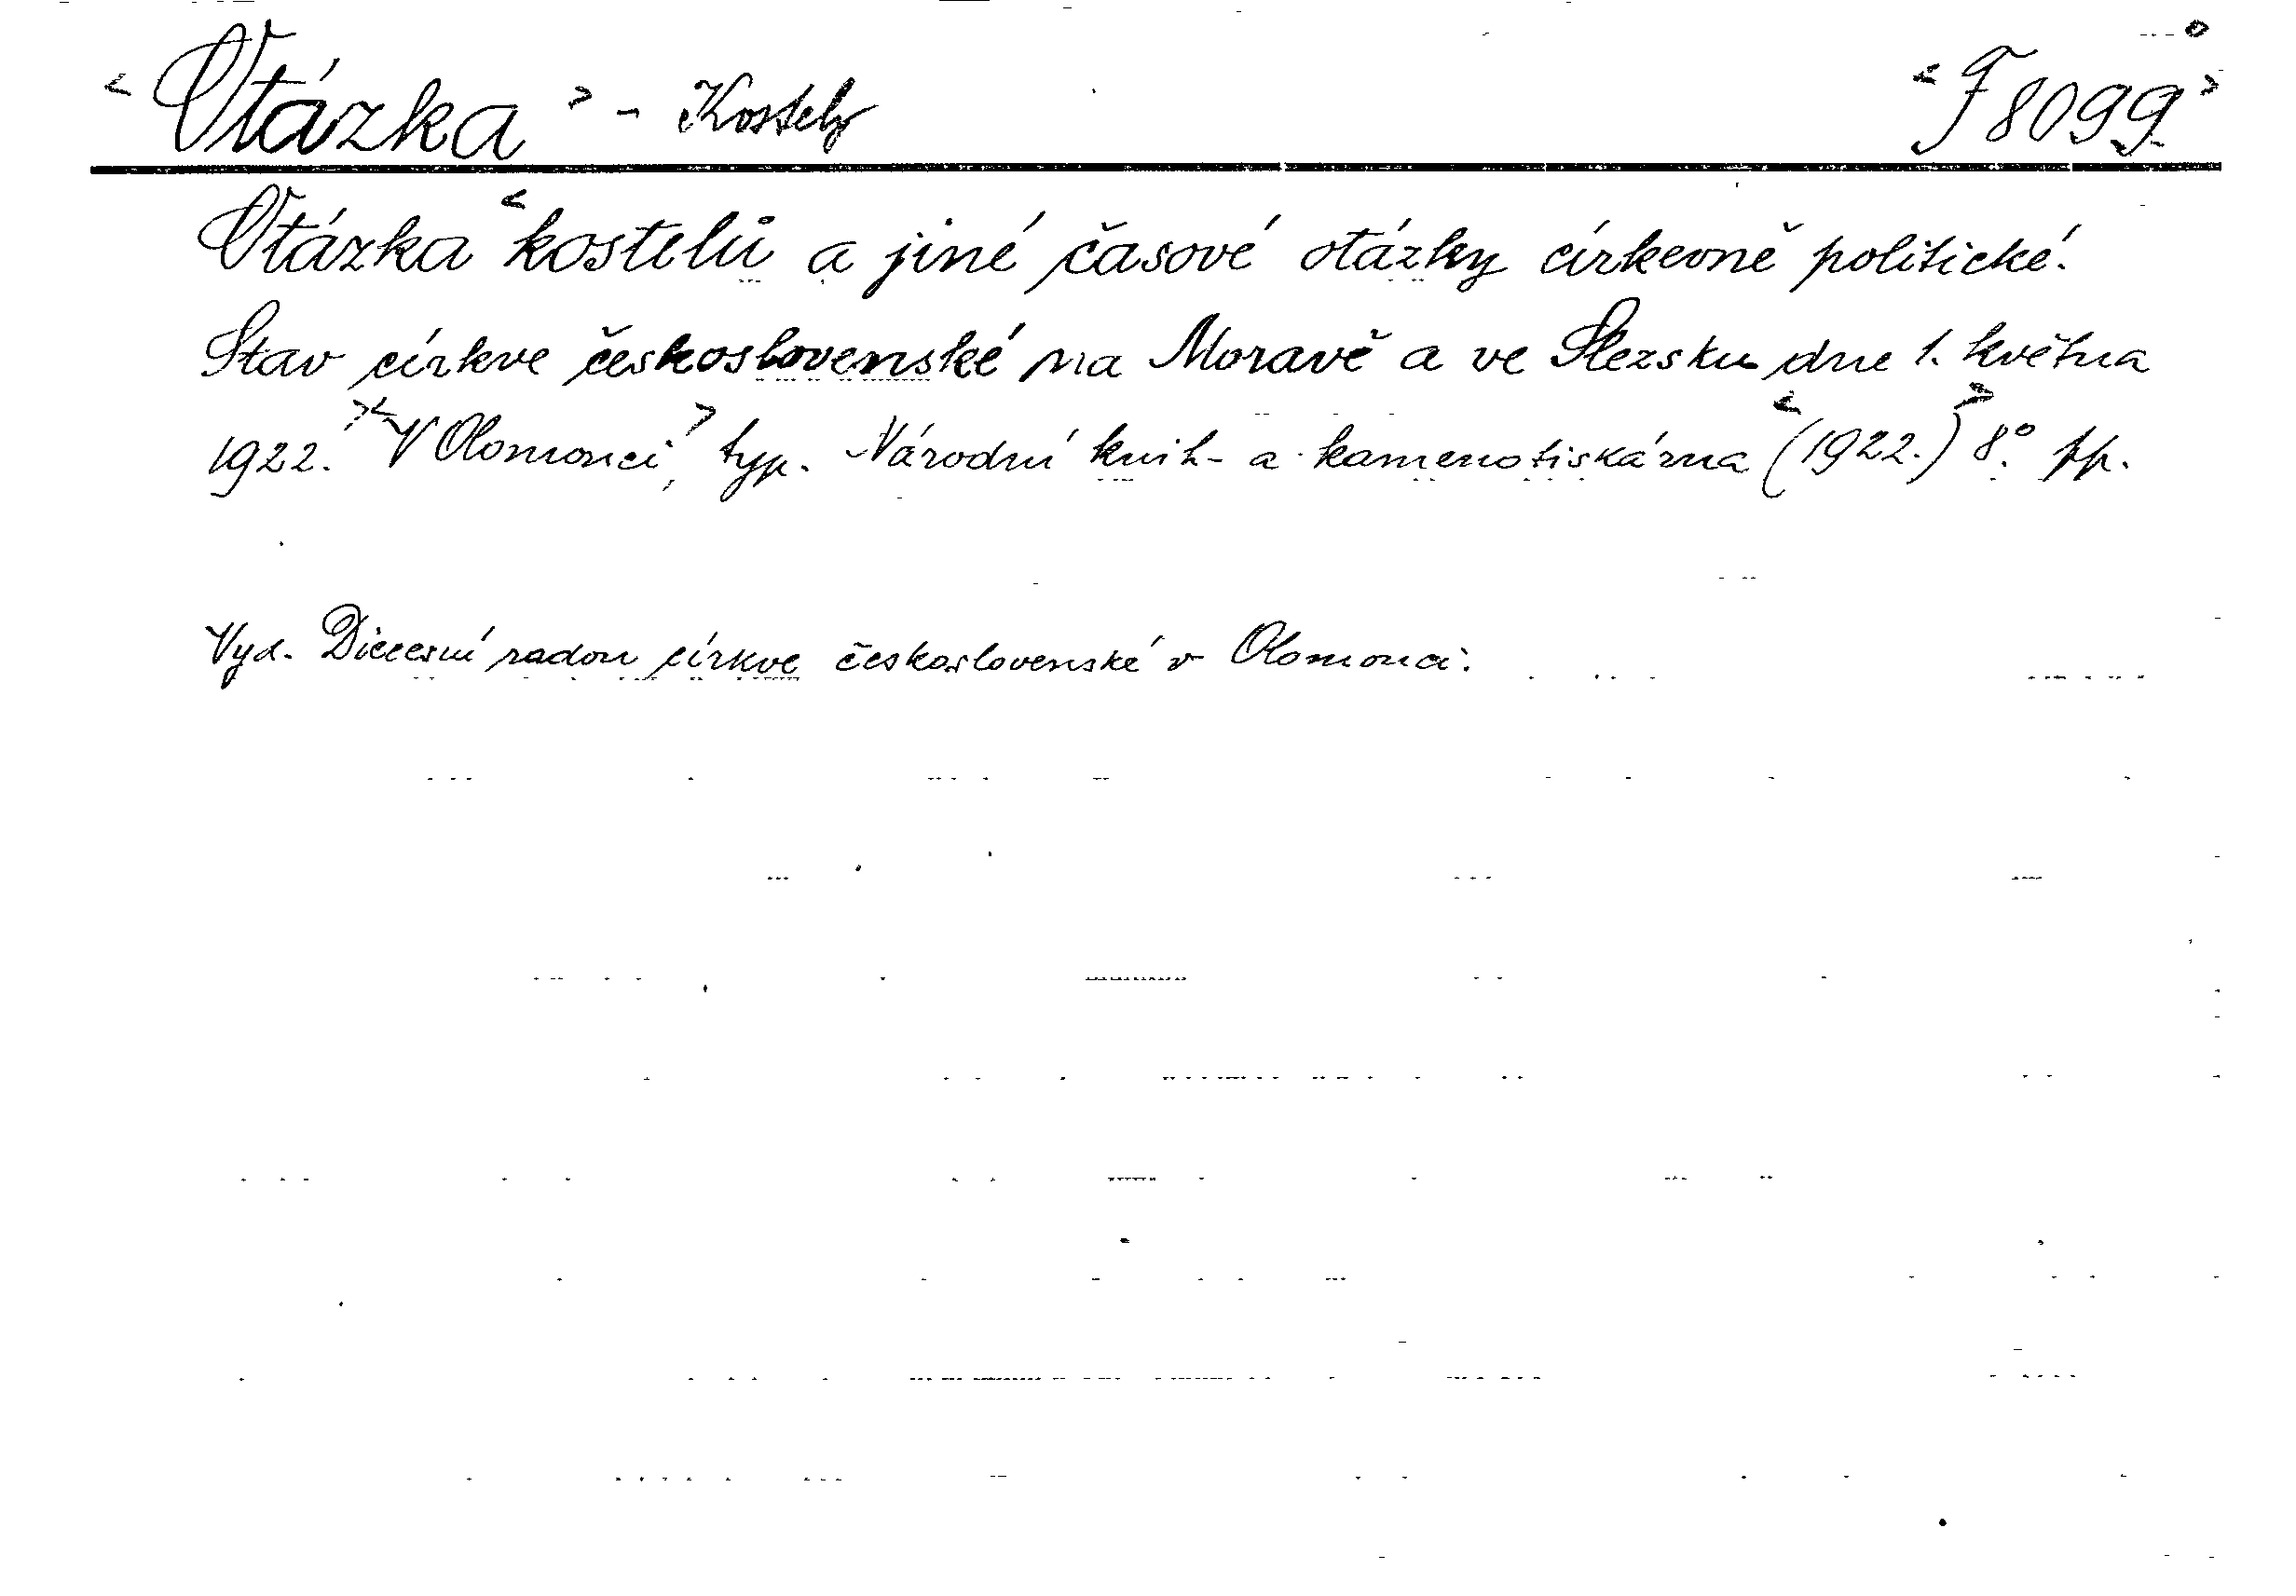 <Otázka> - Kostely <F 8099>
Otázka <kostelů a jiné časové otázky církevně politické.
Stav církve československé na Moravě a ve Slezsku dne 1. května
1922.> <V Olomouci,> typ. Národní knih- a kamenotiskárna <(1922.)> 8°. pp.
Vyd. Diecesní radou církve československé v Olomouci.